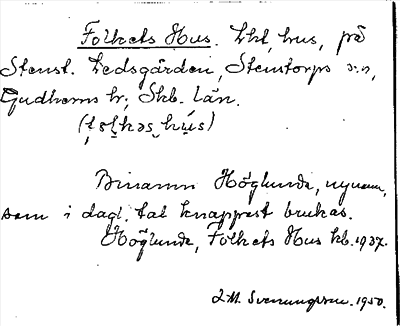 Folkets Hus. Lht, hus, på
Stenst. Ledsgården, Stenstorps s:n,
Gudhems hr, Skb. län.
Binamn Höglunda, nynamn,
som i dagl. tal knappast brukas.
Höglunda, Folkets Hus kb. 1937.
Svenungsson. 1950.